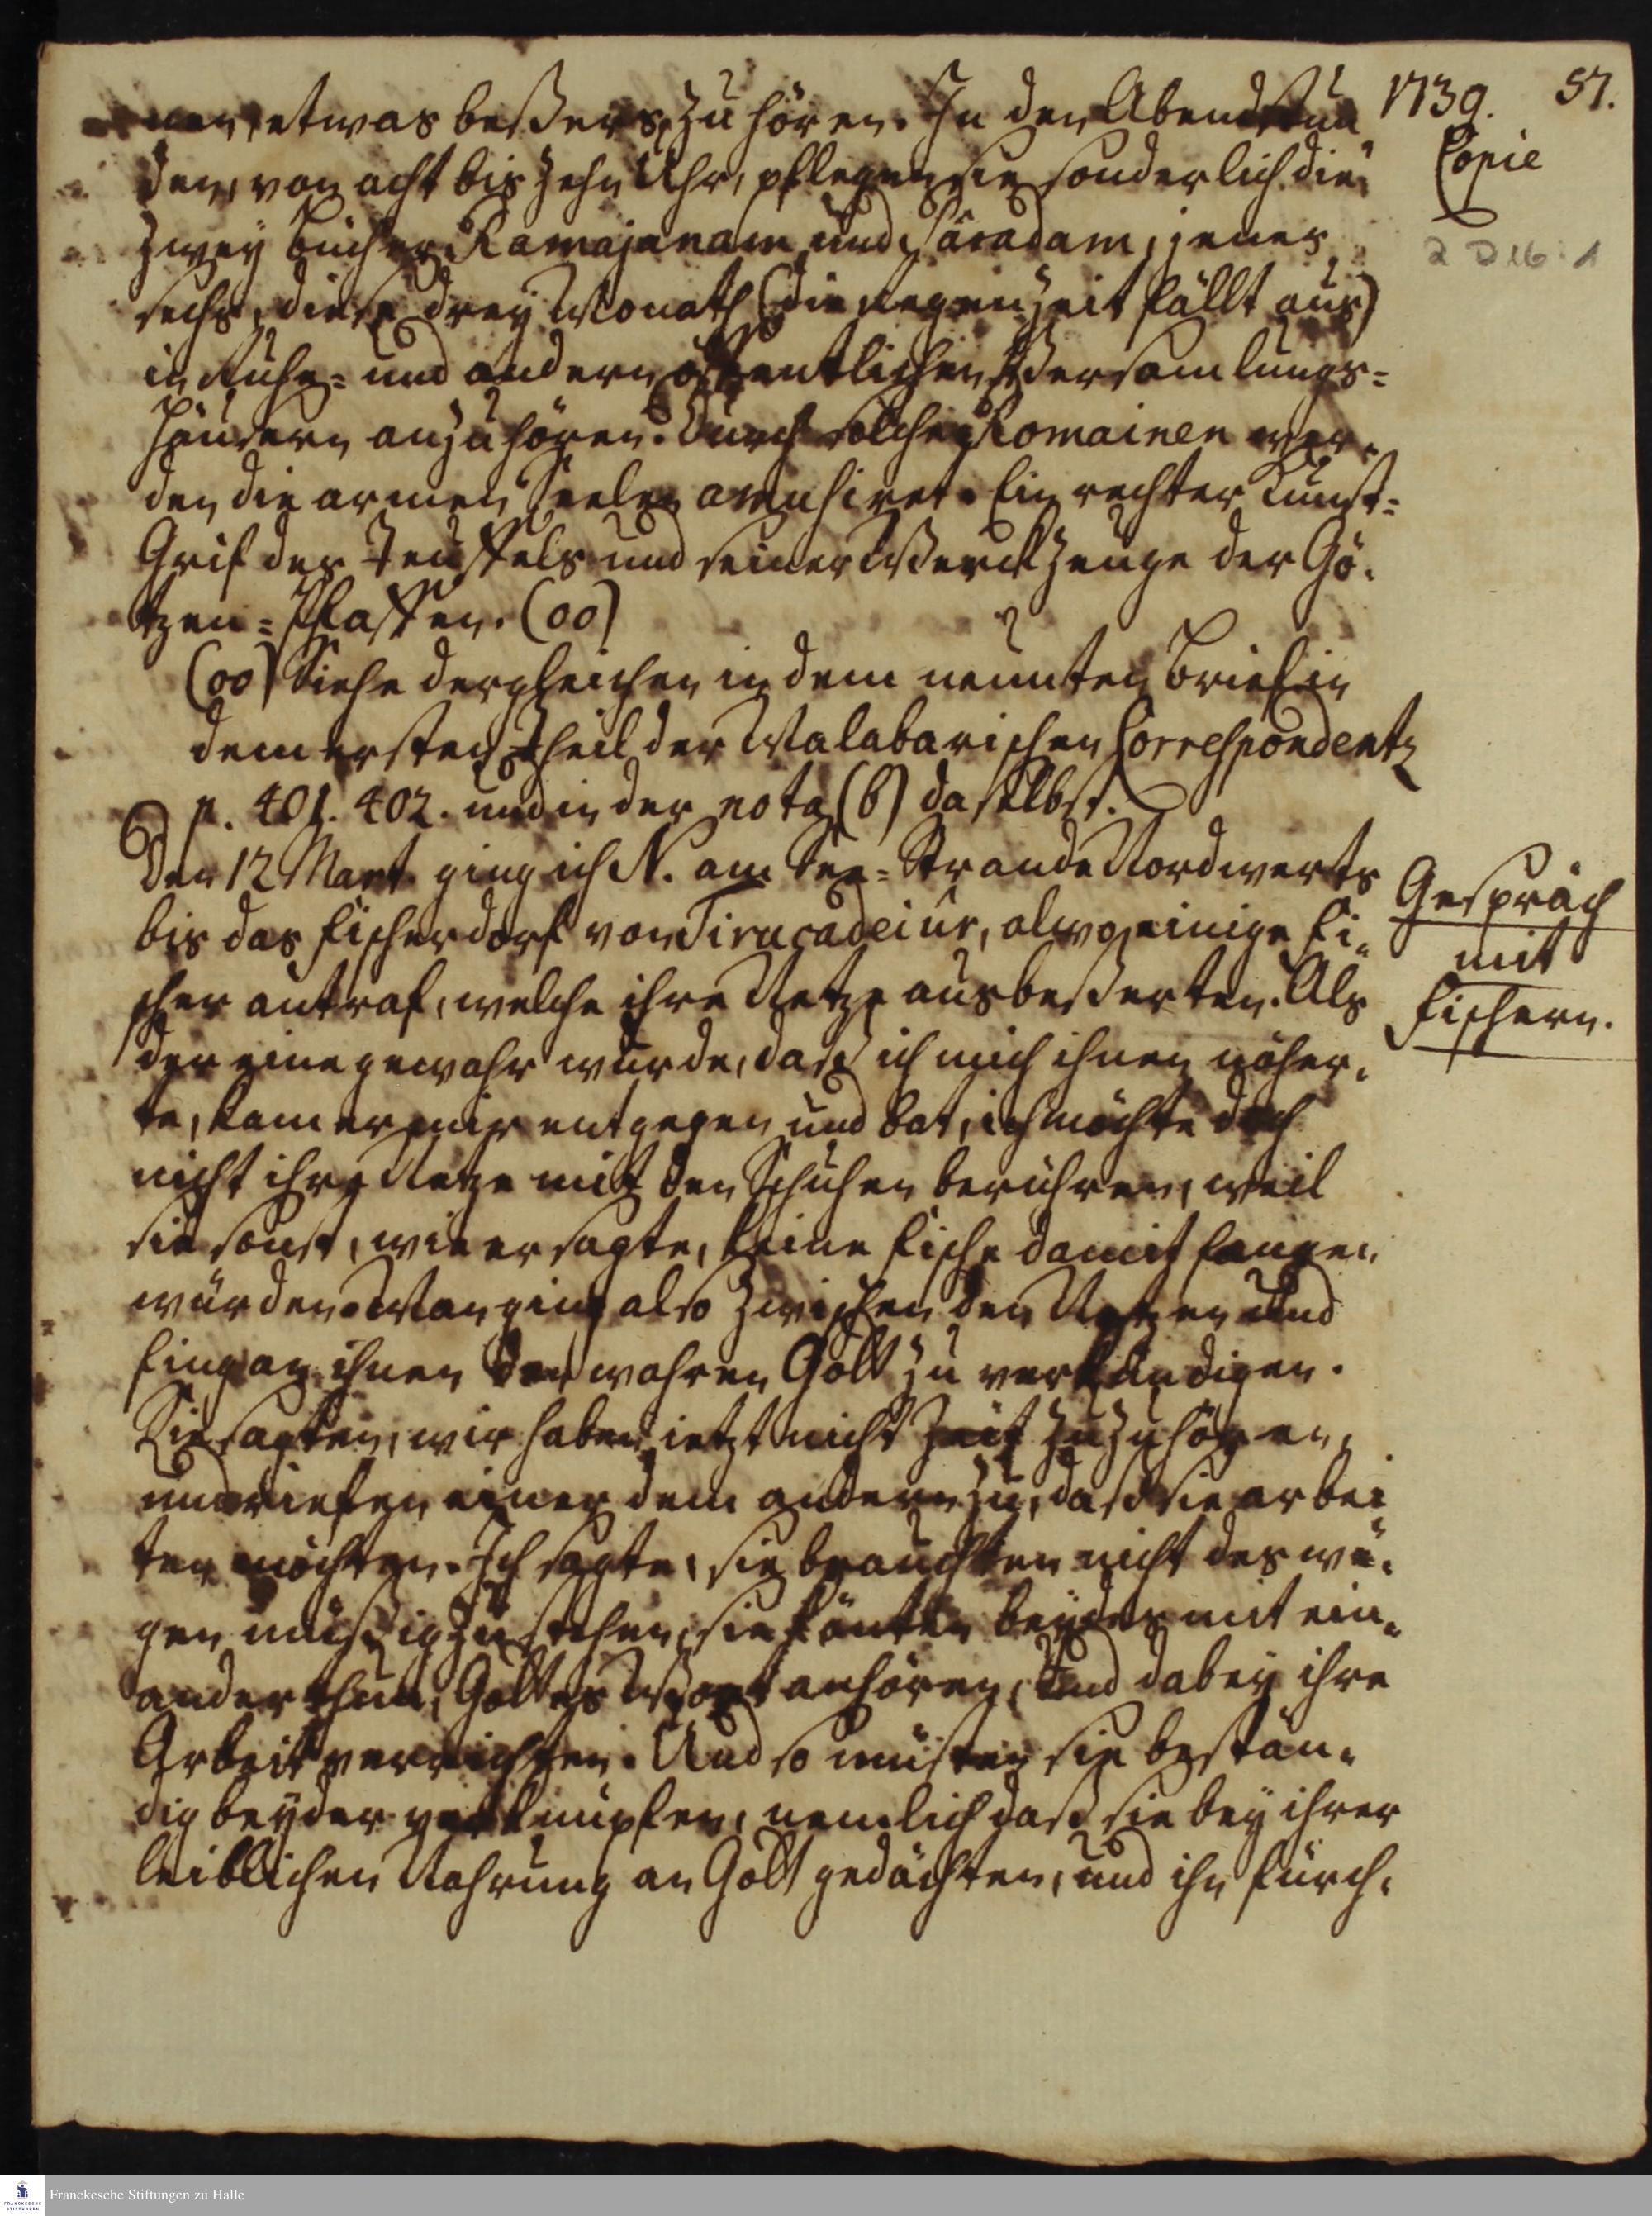 1739. 57.
Copie
2 D 16: 1
nen, etwas beßers, zu hören. In den Abendstun
den, von acht bis zehn Uhr, pflegen sie sonderlich die
zwey Bücher Ramajanam und Báradam, jenes
sechs, dieses drey Monath (die regenzeit fällt aus)
in Ruhe- und andern öffentlichen Versamlungs-
Häusern anzuhören. Durch solche Romainen wer-
den die armen Seelen amusiret. Ein rechter Kunst-
Grif des Teuffels und seiner Werckzeuge der Gö-
tzen-Pfaffen. (oo)
(oo) Siehe dergleichen in dem neunten Brief in
dem ersten Theil der Malabarischen Correspondentz
p. 401. 402. und in der nota (b) daselbst.
Den 12 Mart. ging ich N. am See-Strande Nordwerts
bis das Fischerdorf von Tirucadeiur, alwo einige Fi-
scher antraf, welche ihre Netze ausbeßerten. Als
der eine gewahr wurde, daß ich mich ihnen näher-
te, kam er mir entgegen und bat, ich möchte doch
nicht ihre Netze mit den Schuhen berühren, weil
sie sonst, wie er sagte, keine Fische damit fangen
würden. Man ging also zwischen den Netzen und
fing an ihnen den wahren Gott zu verkündigen.
Sie sagten, wir haben jetzt nicht Zeit zuzuhören,
und riefen einer dem andern zu, daß sie arbei
ten möchten. Ich sagte, sie brauchten nicht deswe-
gen müßig zu stehen, sie könten beydes mit ein-
ander thun, Gottes Wort anhören, und dabey ihre
Arbeit verrichten. Und so müsten sie bestän-
dig beydes verknüpfen, nemlich daß sie bey ihrer
leiblichen Nahrung an Gott gedächten, und ihn fürch-
Gespräch
mit
Fischern.
Franckesche Stiftungen zu Halle